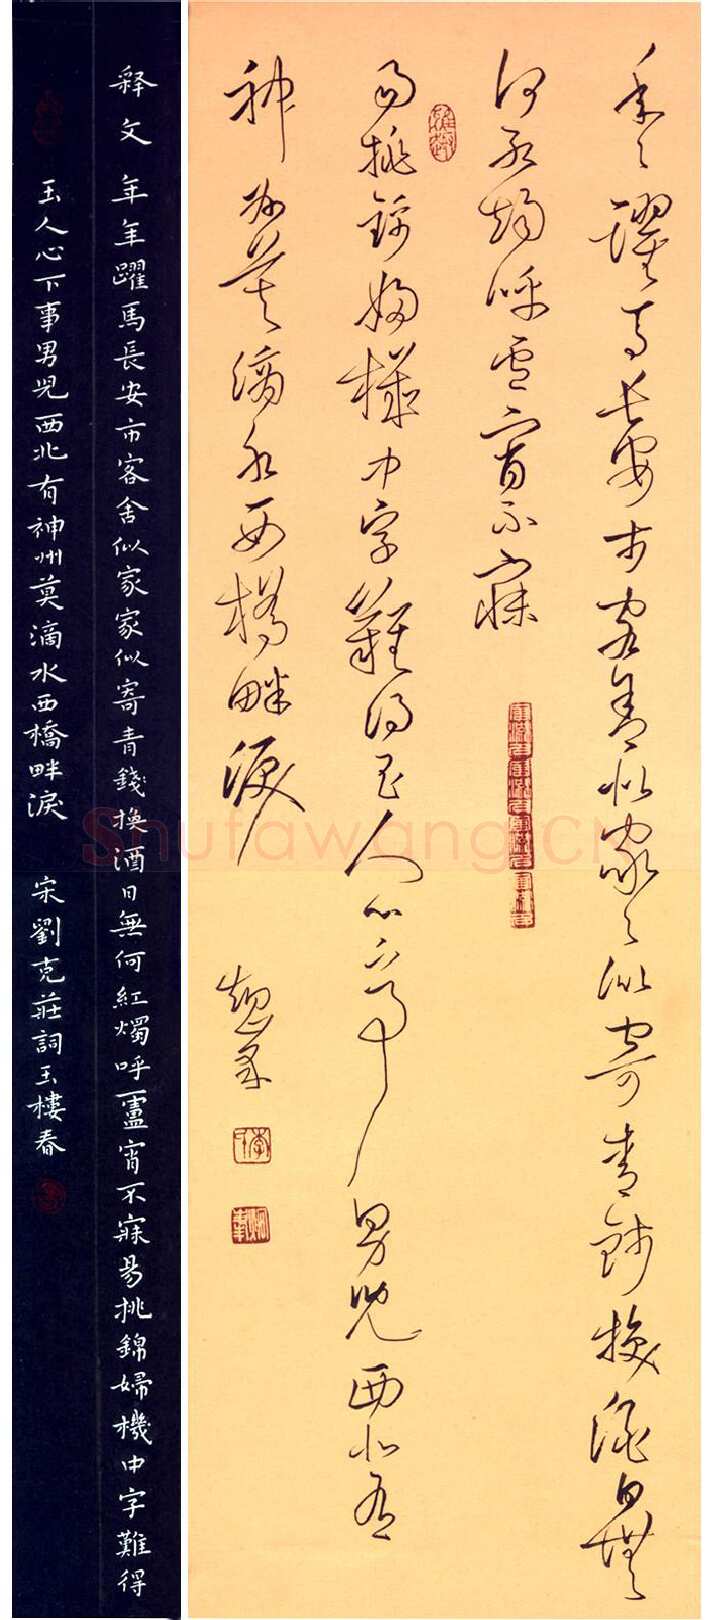 年々躍馬長安市客舍似家々似寄青錢換酒日無
何紅燭呼盧宵不寐
易挑錦婦機中字難得玉人心下事男兒西北有
神州莫滴水西橋畔淚
释文 年年躍馬長安市客舍似家家似寄青錢換酒日無何紅燭呼盧宵不寐易挑錦婦機中字難得
玉人心下事男兒西北有神州莫滴水西橋畔淚 宋劉克莊詞玉樓春
Shufawang.CN